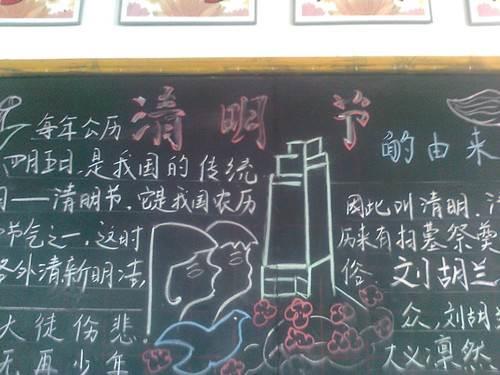 清明节
的由来
每年公历
四月五日,是我国的传统
——清明节,它是我国农历
节气之一,这时
外清新明洁,
大徒伤悲
无再少年
因此叫清明,
历来有扫墓祭奠
俗 刘胡兰
众,刘胡
大义凛然